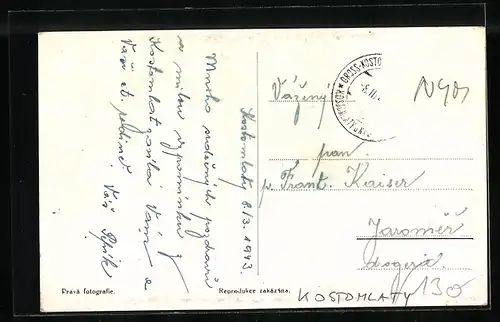 Kostomlaty 8/3. 1943.
Mnoho srdečných pozdravů
a milou vzpomínku z
Kostomlat zasílá Vám a
Vaší ct. rodině Váš Pepík
GROSS-KOSTO
Vážený
pan
p. Frant. Kaiser
Jaroměř
drogerie
Pravá fotografie.
Reprodukce zakázána.
KOSTOMLATY
130